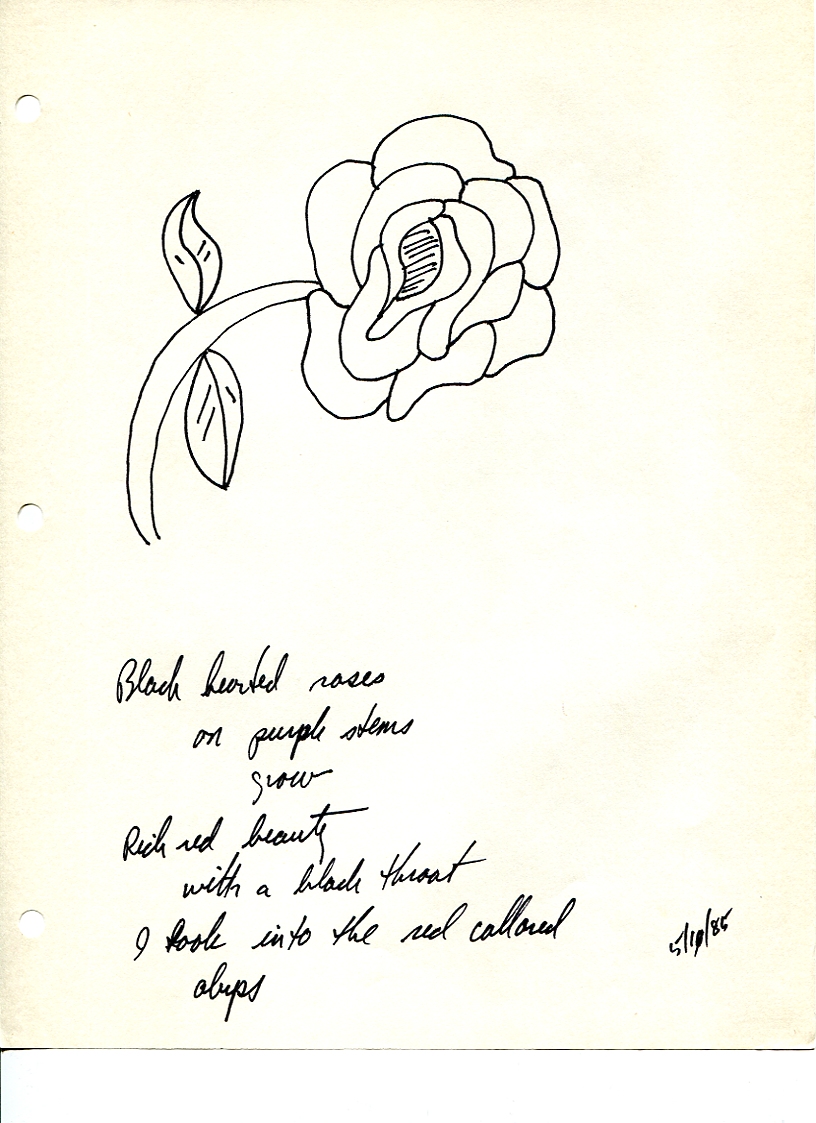 Black hearted roses
on purple stems
grow
Rich red beauty
with a black throat
I look into the red collared
abyss
5/10/85